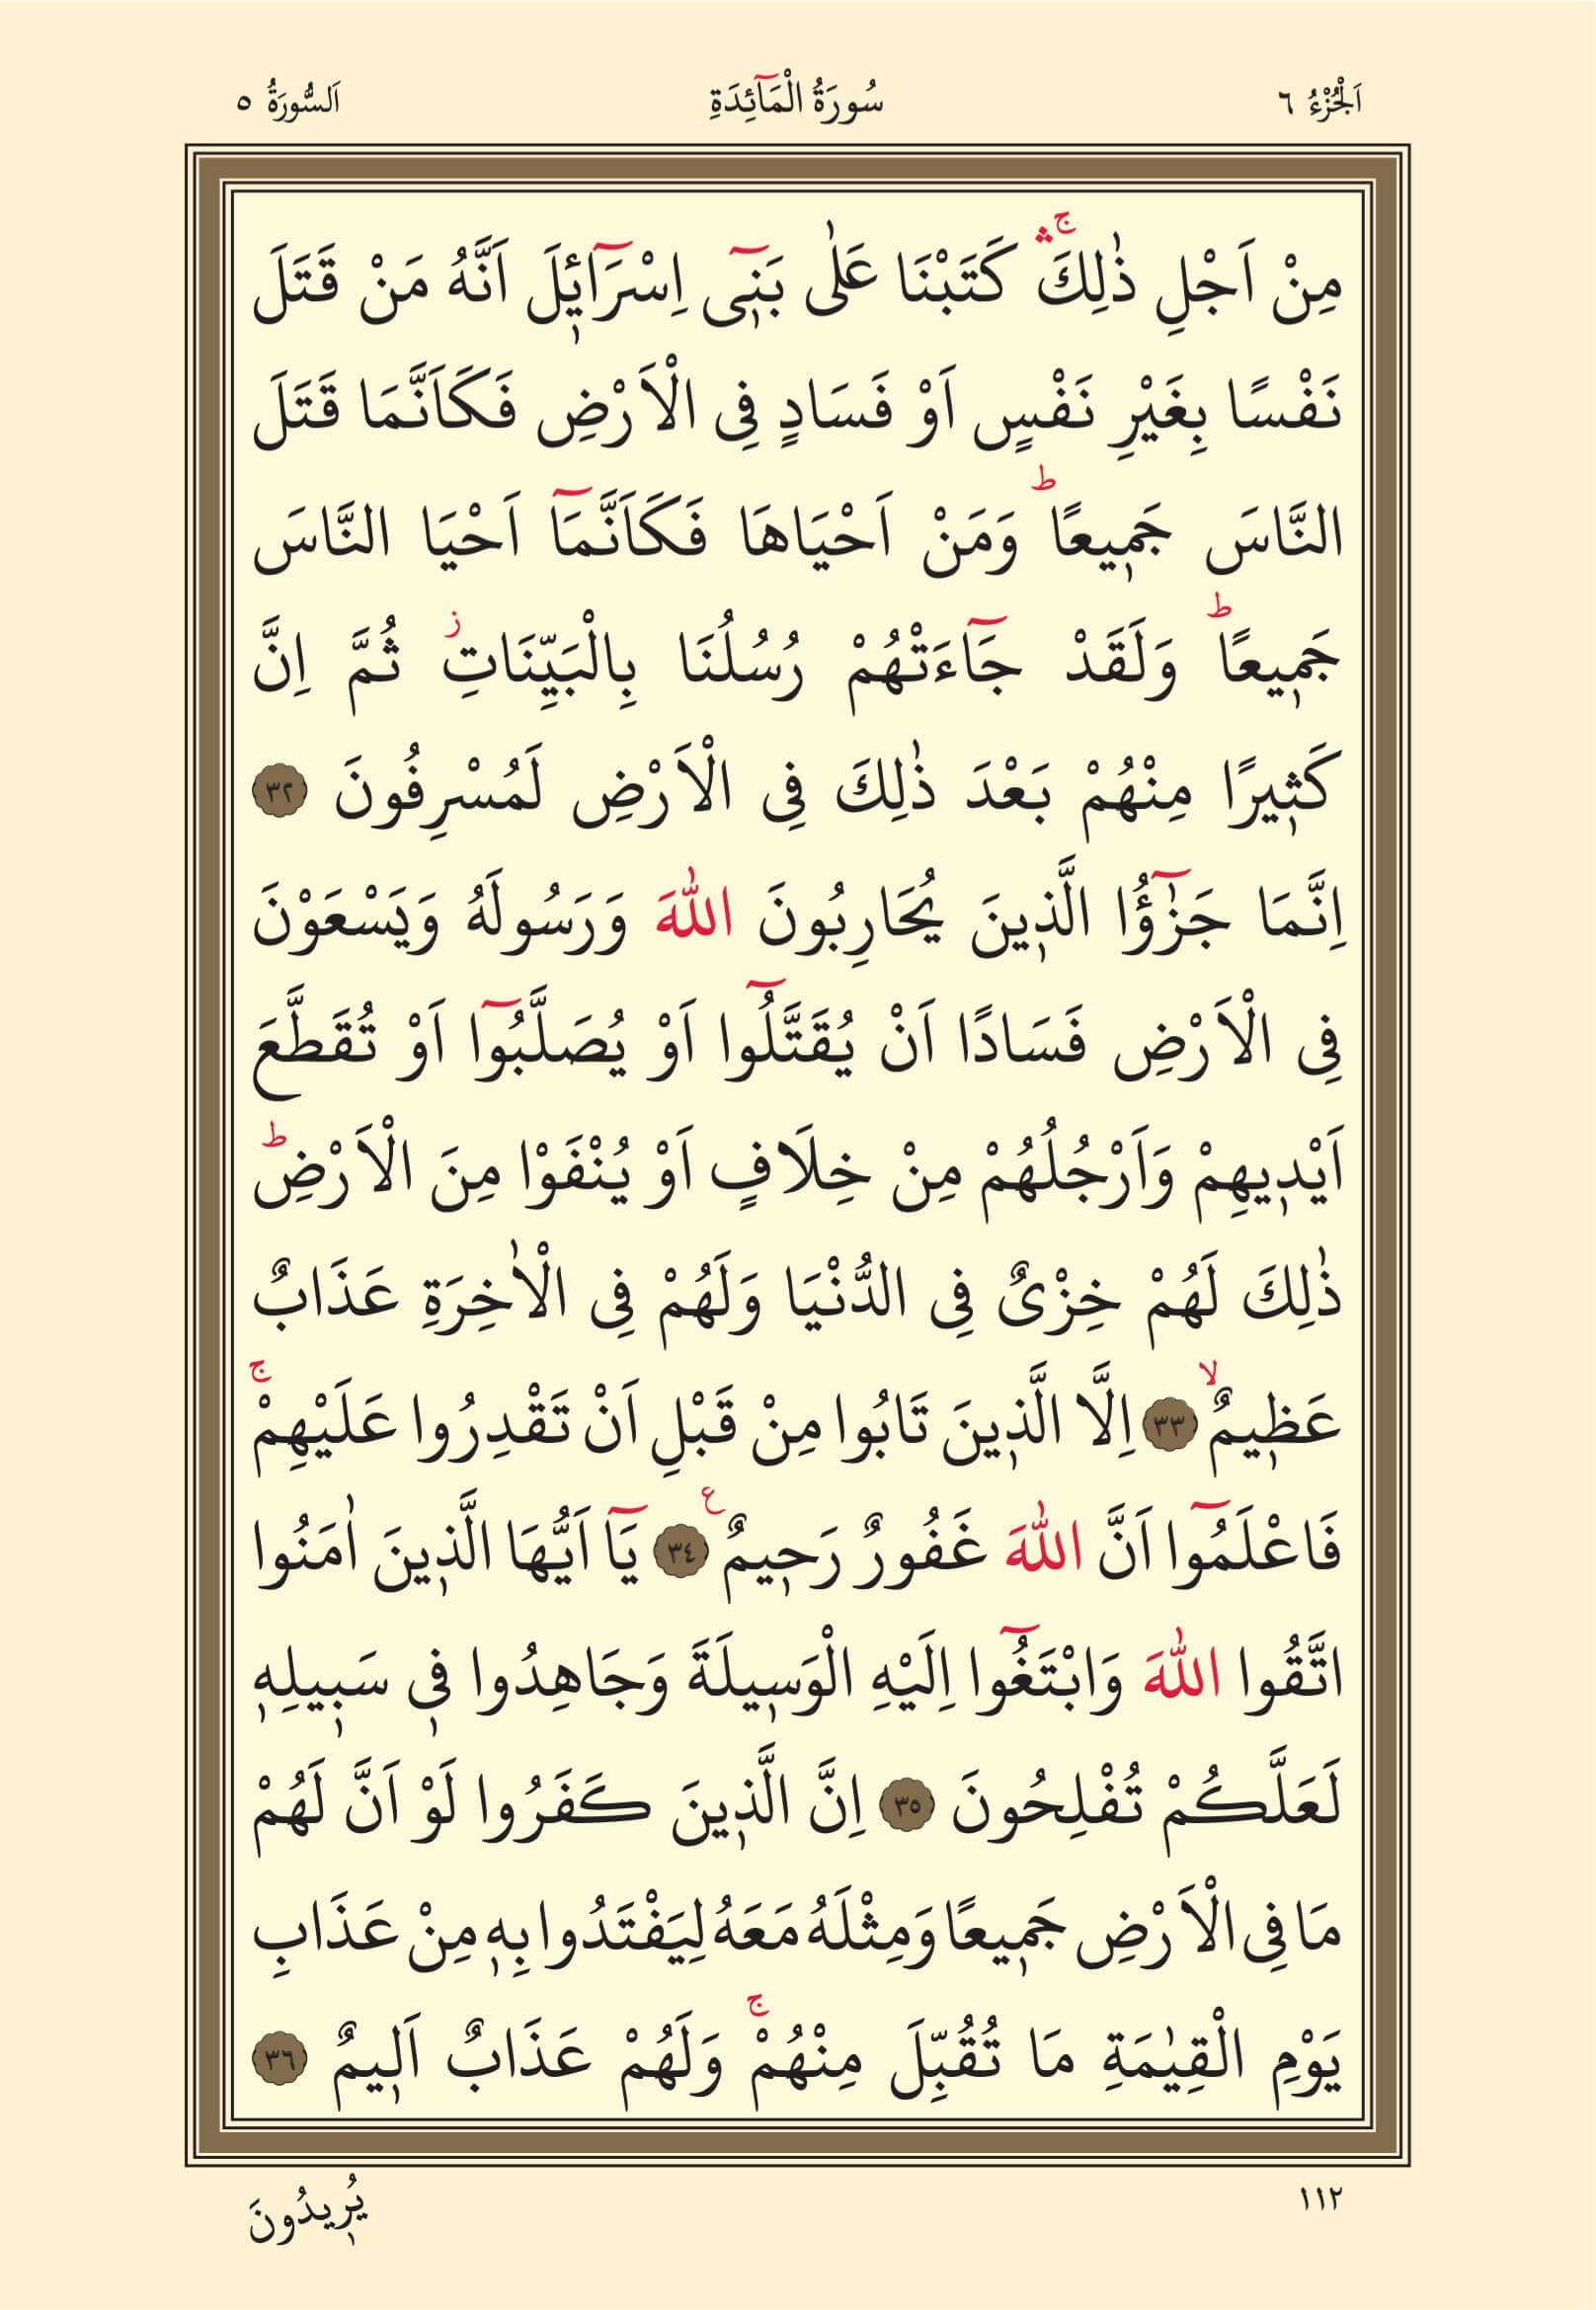 اَلْجُزْءُ ٦
سُورَةُ الْمَآئِدَةِ
اَلسُّورَةُ ٥
مِنْ اَجْلِ ذٰلِكَۛۚ كَتَبْنَا عَلٰى بَنٖٓى اِسْرَٓائٖلَ اَنَّهُ مَنْ قَتَلَ
نَفْسًا بِغَيْرِ نَفْسٍ اَوْ فَسَادٍ فِى الْاَرْضِ فَكَاَنَّمَا قَتَلَ
النَّاسَ جَمٖيعًاؕ وَمَنْ اَحْيَاهَا فَكَاَنَّمَٓا اَحْيَا النَّاسَ
جَمٖيعًاؕ وَلَقَدْ جَٓاءَتْهُمْ رُسُلُنَا بِالْبَيِّنَاتِؗ ثُمَّ اِنَّ
كَثٖيرًا مِنْهُمْ بَعْدَ ذٰلِكَ فِى الْاَرْضِ لَمُسْرِفُونَ ٣٢
اِنَّمَا جَزٰٓؤُا الَّذٖينَ يُحَارِبُونَ اللّٰهَ وَرَسُولَهُ وَيَسْعَوْنَ
فِى الْاَرْضِ فَسَادًا اَنْ يُقَتَّلُٓوا اَوْ يُصَلَّبُٓوا اَوْ تُقَطَّعَ
اَيْدٖيهِمْ وَاَرْجُلُهُمْ مِنْ خِلَافٍ اَوْ يُنْفَوْا مِنَ الْاَرْضِؕ
ذٰلِكَ لَهُمْ خِزْىٌ فِى الدُّنْيَا وَلَهُمْ فِى الْاٰخِرَةِ عَذَابٌ
عَظٖيمٌۙ ٣٣ اِلَّا الَّذٖينَ تَابُوا مِنْ قَبْلِ اَنْ تَقْدِرُوا عَلَيْهِمْۚ
فَاعْلَمُٓوا اَنَّ اللّٰهَ غَفُورٌ رَحٖيمٌ ع ٣٤ يَٓا اَيُّهَا الَّذٖينَ اٰمَنُوا
اتَّقُوا اللّٰهَ وَابْتَغُٓوا اِلَيْهِ الْوَسٖيلَةَ وَجَاهِدُوا فٖى سَبٖيلِهٖ
لَعَلَّكُمْ تُفْلِحُونَ ٣٥ اِنَّ الَّذٖينَ كَفَرُوا لَوْ اَنَّ لَهُمْ
مَا فِى الْاَرْضِ جَمٖيعًا وَمِثْلَهُ مَعَهُ لِيَفْتَدُوا بِهٖ مِنْ عَذَابِ
يَوْمِ الْقِيٰمَةِ مَا تُقُبِّلَ مِنْهُمْۚ وَلَهُمْ عَذَابٌ اَلٖيمٌ ٣٦
١١٢
يُرٖيدُونَ